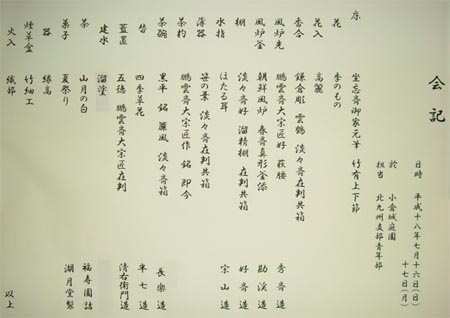 会記
日時 平成十八年七月十六日（日）
十七日（月）
於 小倉城庭園
担当 北九州支部青年部
床 坐忘斎御家元筆 竹有上下節
花 季のもの
花入 高麗
香合 鎌倉彫 雲鶴 淡々斎在判共箱 秀斎造
風炉先 鵬雲斎大宗匠好 萩腰 勘渓造
風炉釜 朝鮮風炉 春斎真形釜添 好斎造
棚 淡々斎好 溜精棚 在判共箱
水指 ほたる耳 宗山造
薄器 笹の葉 淡々斎在判共箱
茶杓 鵬雲斎大宗匠作 銘 即今
茶碗 黒平 銘 薫風 淡々斎箱 長楽造
替 四季草花 半七造
蓋置 五徳 鵬雲斎大宗匠在判 清右衛門造
建水 溜塗
茶 山月の白 福寿園詰
菓子 夏祭り 湖月堂製
器 縁高
煙草盆 竹細工
火入 織部
以上